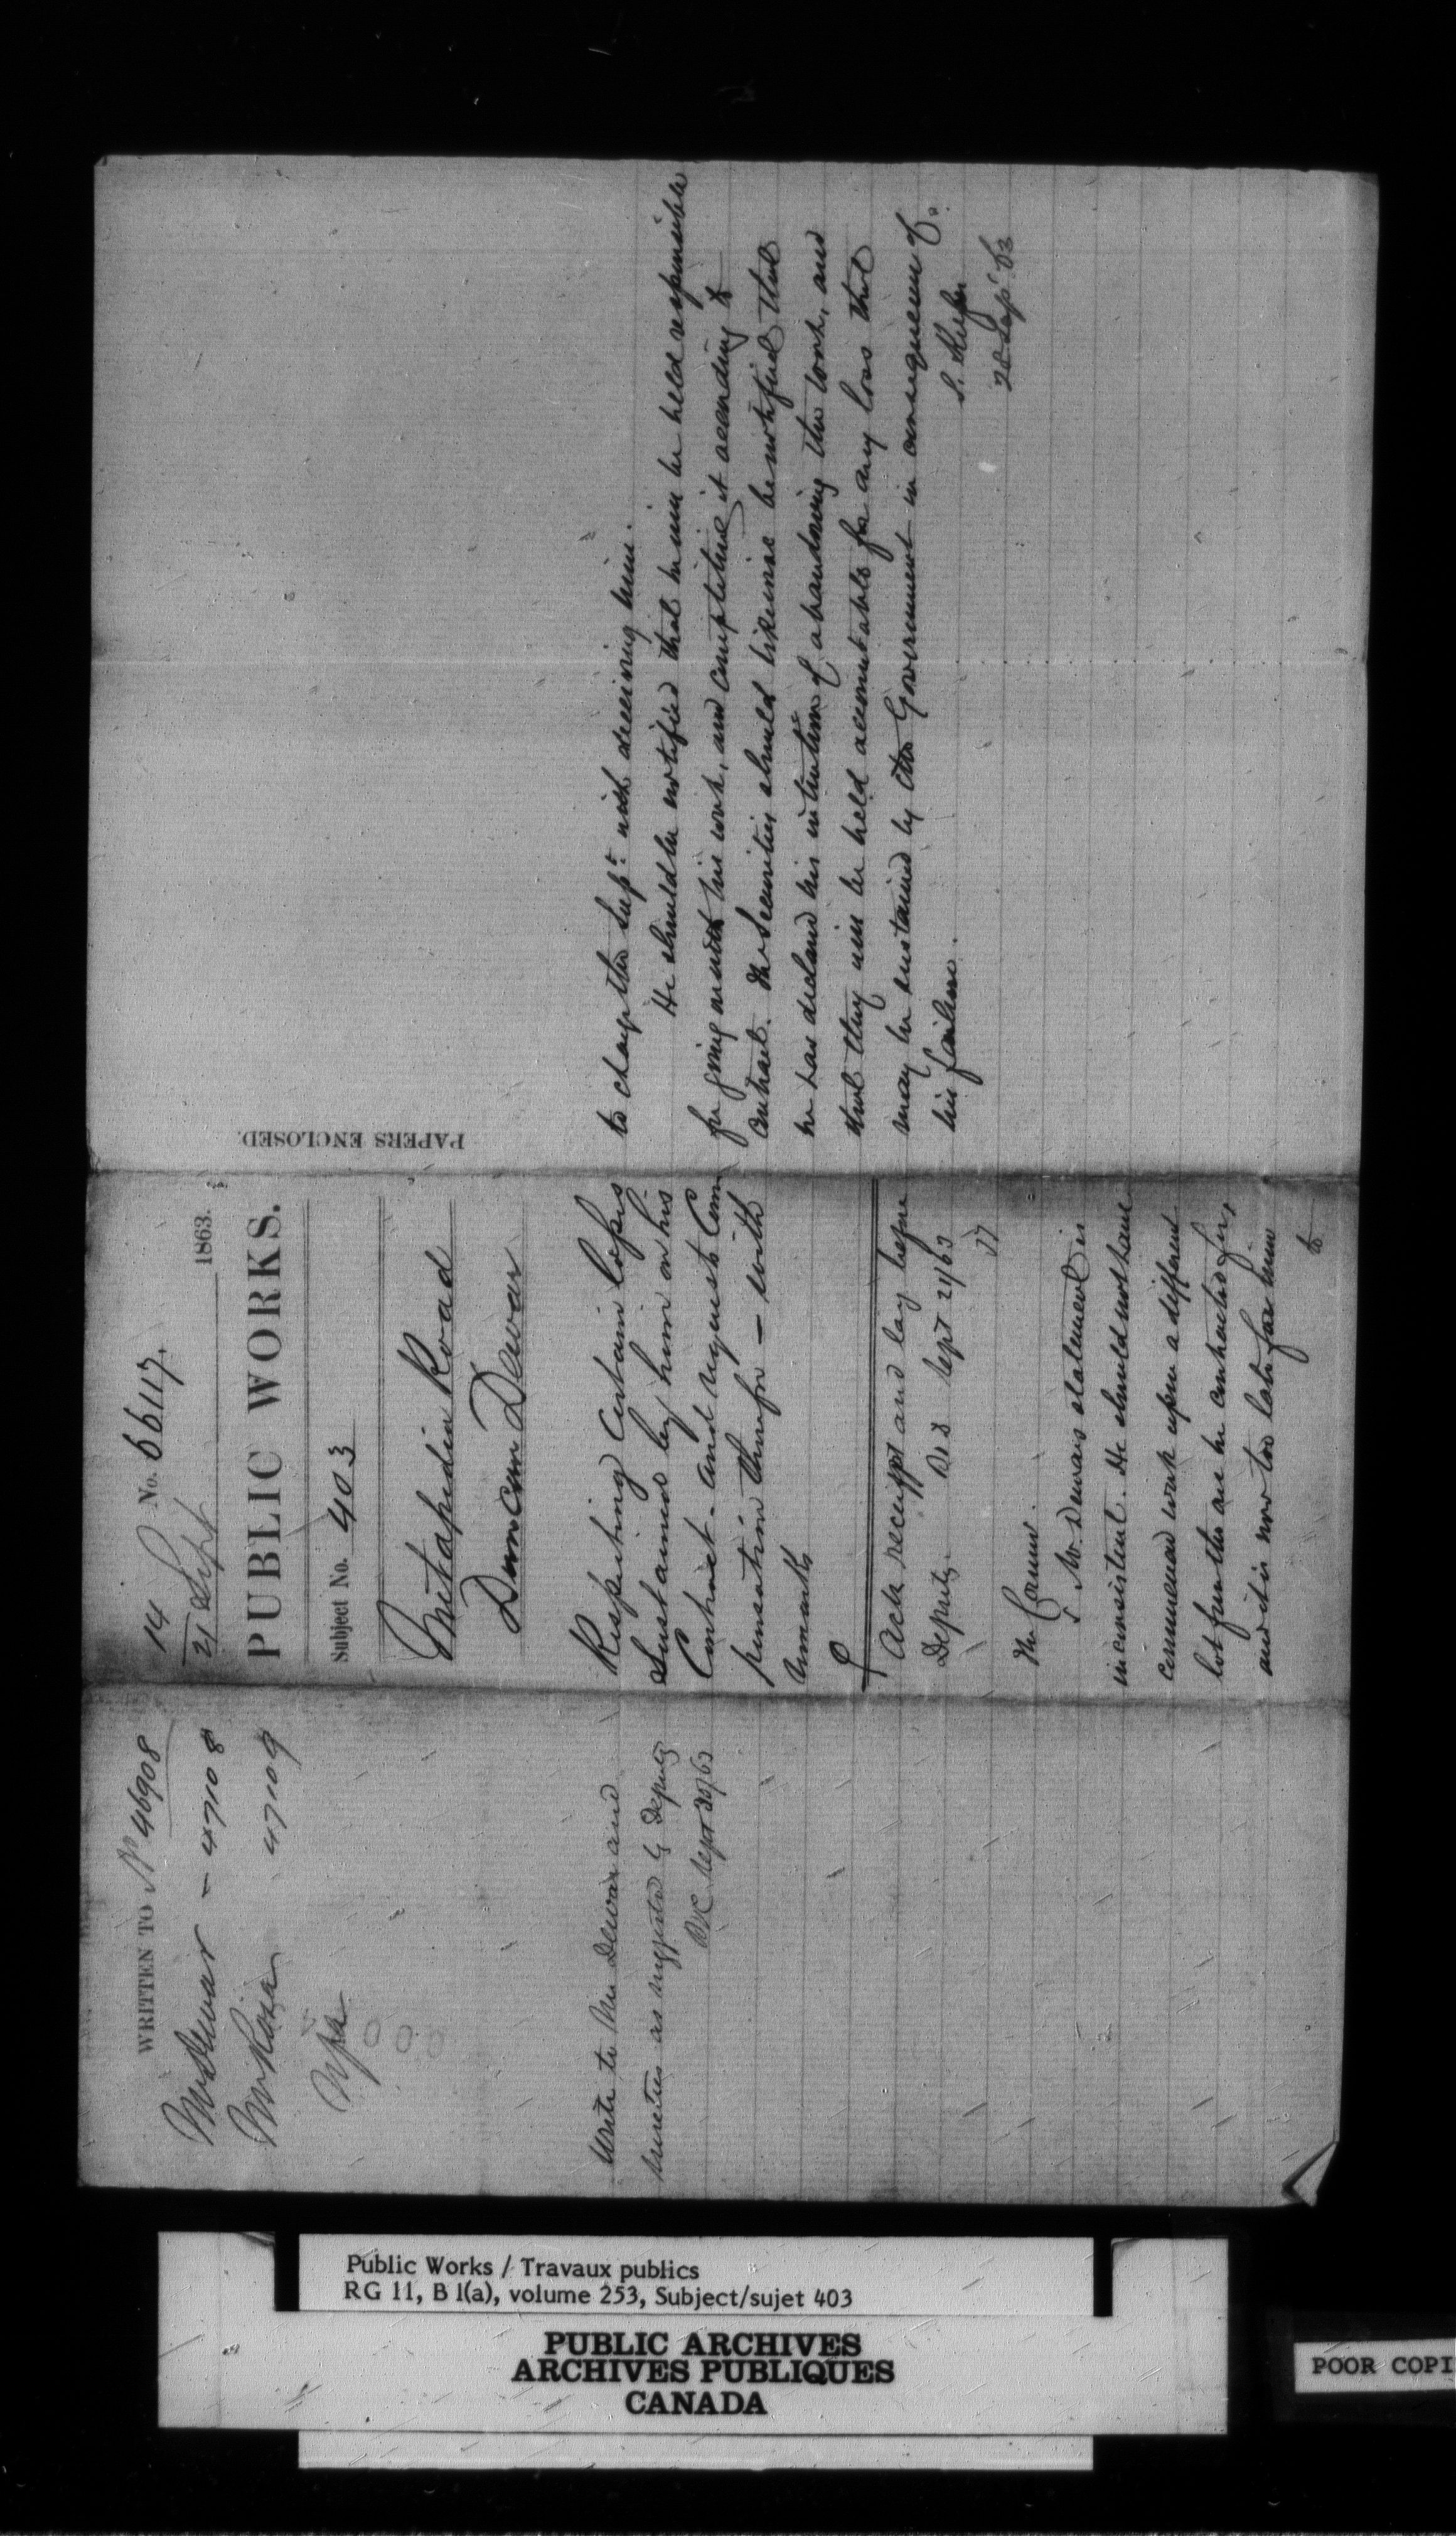 WRITTEN TO No 46908
Mr Dewar - 47108
Mr Rosa 47109
Write to Mr Dewar and
sureties as suggested by Deputy
Sept 30/63
14 No. 66117.
21 Sept 1863.
PUBLIC WORKS.
Subject No. 403
Metapedia Road
Duncan Dewar
Respecting certain losses
sustained by him on his
Contract - and requests Com
pensation therefor - with
remarks
Ack receippt and lay before
Deputy. Sept 21/63
The Commr.
Mr. Dewars statement is
inconsistent. He should not have
commenced work upon a different
lot from the one he contracted for,
and it is now too late for him
to
PAPERS ENCLOSED.
to charge the Supt. with deceiving him.
He should be notified that he will be held responsible
for going on with his work, and completing it according to
contract. The Securities should likewise be notified that
he has declared his intention of abandoning the work, and
that they will be held accountable for any loss that
may be sustained by the Government in consequence of
his failure.
28 Sep' 63
Public Works / Travaux publics
RG 11, B 1(a), volume 253, Subject/sujet 403
PUBLIC ARCHIVES
ARCHIVES PUBLIQUES
CANADA
POOR COPI